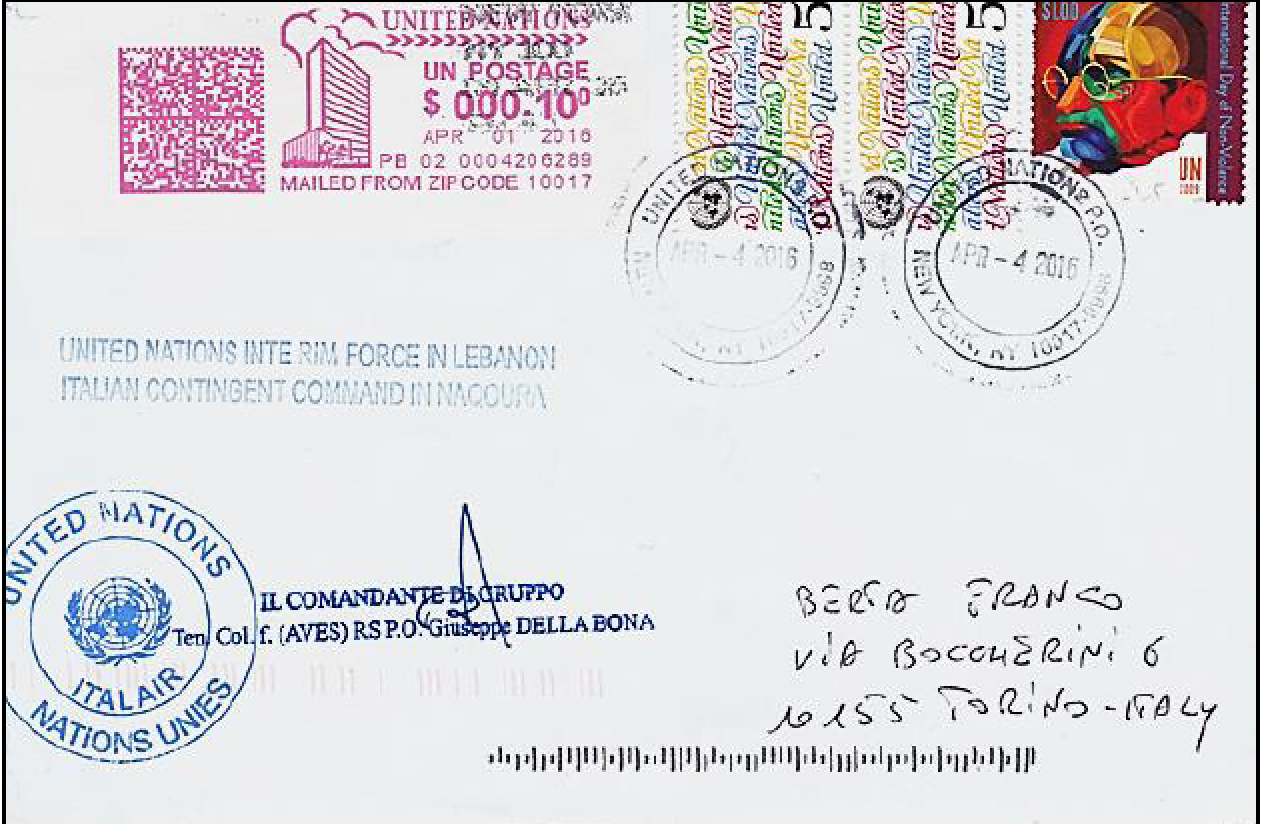 UNITED NATIONS
UN POSTAGE
$ 000.10⁰
APR 01 2016
PB 02 0004206289
MAILED FROM ZIPCODE 10017
$1.00
International Day of Non-Violence
UN
2009
UNITED NATIONS
APR - 4 2016
NATIONS P.O.
APR - 4 2016
NEW YORK, NY 10017-9998
UNITED NATIONS INTERIM FORCE IN LEBANON
ITALIAN CONTINGENT COMMAND IN NAQOURA
UNITED NATIONS
ITALAIR
NATIONS UNIES
IL COMANDANTE DI GRUPPO
Ten. Col. f. (AVES) RS P.O. Giuseppe DELLA BONA
BERTA FRANCO
VIA BOCCHERINI 6
10155 TORINO-ITALY